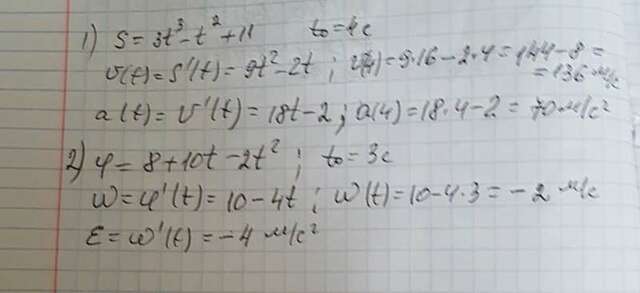 1) S = 3t³ - t² + 11 t₀ = 4c
v(t) = S'(t) = 9t² - 2t ; v(4) = 9·16 - 2·4 = 144 - 8 =
= 136 м/с
a(t) = v'(t) = 18t - 2 ; a(4) = 18·4 - 2 = 70 м/с²
2) φ = 8 + 10t - 2t² ; t₀ = 3c
ω = φ'(t) = 10 - 4t ; ω(t) = 10 - 4·3 = -2 м/с
ε = ω'(t) = -4 м/с²